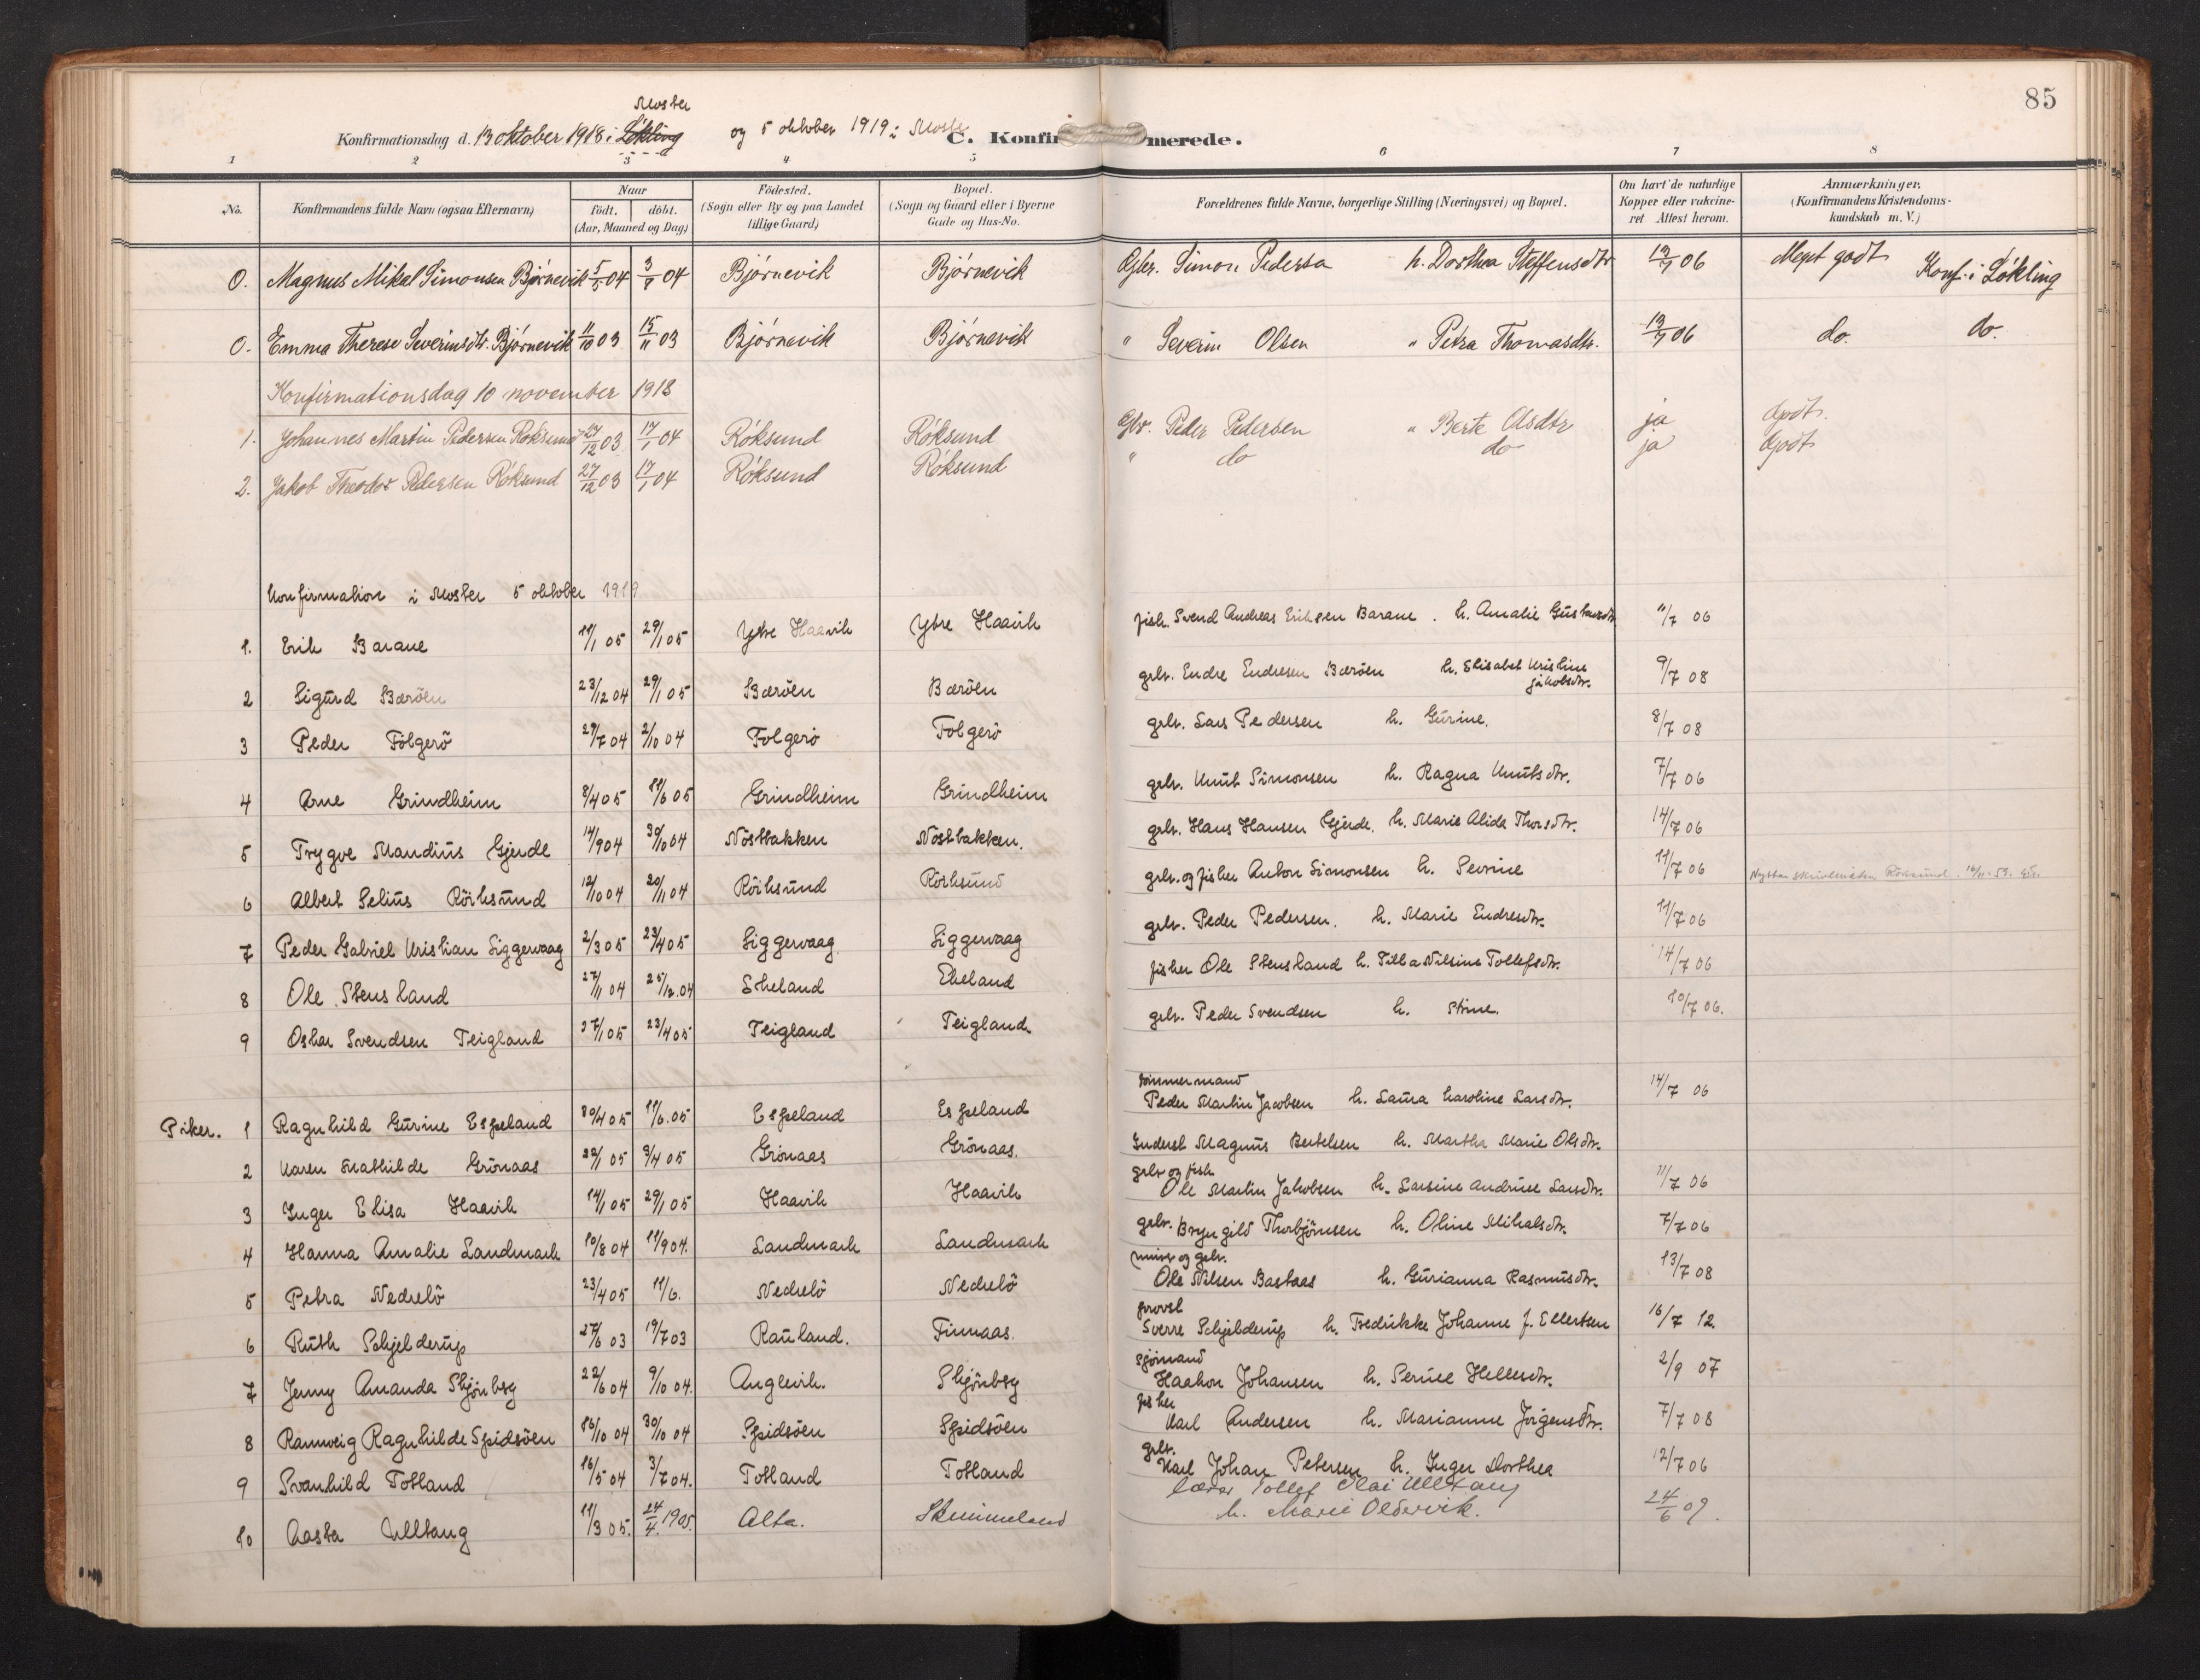 85
Moster
Konfirmationsdag d. 13 oktober 1918 i Løkling og 5 oktober 1919 i Moster C. Konfirmerede.
1 2 3 4 5 6 7 8
No. Konfirmandens fulde Navn (ogsaa Efternavn) Naar født. døbt. (Aar, Maaned og Dag) Fødested. (Sogn eller By og paa Landet tillige Gaard) Bopæl. (Sogn og Gaard eller i Byerne Gade og Hus-No. Forældrenes fulde Navne, borgerlige Stilling (Næringsvei) og Bopæl. Om havt de naturlige Kopper eller vakcineret. Attest herom. Anmærkninger. (Konfirmandens Kristendomskundskab m. V.)
0. Magnus Mikal Simonsen Bjørnevik 5/5 04 3/7 04 Bjørnevik Bjørnevik Gbr. Simon Pedersen h. Dorthea Steffensdtr 12/7 06 Meget godt Konf. i Løkling
0. Emma Therese Severinsdtr. Bjørnevik 11/10 03 15/11 03 Bjørnevik Bjørnevik " Severin Olsen " Petra Thomasdtr. 12/7 06 do. do.
Konfirmationsdag 10 november 1918
1. Johannes Martin Pedersen Røksund 27/12 03 17/1 04 Røksund Røksund Gbr. Peder Pedersen " Berte Olsdtr ja Godt.
2. Jakob Theodor Pedersen Røksund 27/12 03 17/1 04 Røksund Røksund " do do ja Godt
Konfirmation i Moster 5 oktober 1919
1. Erik Barane 11/1 05 29/1 05 Ytre Haavik Ytre Haavik fisk. Svend Andreas Eriksen Barane. h. Amalie Gustavsdtr. 11/7 06
2 Sigurd Børøen 23/12 04 29/1 05 Børøen Børøen grbr. Endre Endresen Børøen h. Elisabet Kristine Jakobsdtr. 9/7 08
3 Peder Folgerø 29/7 04 2/10 04 Folgerø Folgerø grbr. Lars Pedersen h. Gurine. 8/7 08
4 Arne Grindheim 8/4 05 11/6 05 Grindheim Grindheim grbr. Knut Simonsen h. Ragna Knutsdtr. 7/7 06
5 Trygve Mandius Gjerde 14/9 04 30/10 04 Nøstbakken Nøstbakken. grbr. Hans Hansen Gjerde. h. Marie Alida Thorsdtr. 14/7 06
6 Albert Selius Röiksund 12/10 04 20/11 04 Röiksund Röiksund grbr. og fisker Anton Simonsen h. Severine 11/7 06
7 Peder Gabriel Kristian Siggervaag 2/3 05 23/4 05 Siggervaag Siggervaag grbr. Peder Pedersen. h. Marie Endresdtr. 11/7 06
8 Ole Stensland 27/11 04 25/12 04 Ekeland Ekeland fisker Ole Stensland h. Tilla Nilsine Tollefsdtr. 14/7 06
9 Oskar Svendsen Teigland 27/1 05 23/4 05 Teigland Teigland grbr. Peder Svendsen h. Stine. 10/7 06.
Piker. 1 Ragnhild Gurine Espeland 30/4 05 11/6. 05 Espeland Espeland tømmermand Peder Martin Jacobsen h. Laura Karoline Larsdtr. 14/7 06
2 Karen Mathilde Grönaas 22/1 05 9/4 05 Grönaas Grönaas. Inderst Magnus Bertelsen h. Martha Marie Olsdtr.
3 Inger Elisa Haavik 14/1 05 29/1 05 Haavik Haavik grbr og fisk Ole Martin Jakobsen h. Larsine Andrine Larsdtr. 11/7 06
4 Hanna Amalie Landmark 10/8 04 11/9 04. Landmark Landmark grbr. Bryngild Thorbjörnsen h. Oline Mikalsdtr. 7/7 06
5 Petra Nedrelö 23/4 05 11/6. Nedrelö Nedrelö murer og grbr. Ole Nilsen Bastaas h. Gurianna Rasmusdtr. 13/7 08
6 Ruth Schjelderup 27/6 03 19/7 03 Rauland. Finnaas. provst Sverre Schjelderup h. Fredrikke Johanne f. Ellertsen 16/7 12
7 Jenny Amanda Skjönberg 22/6 04 9/10 04. Anglevik. Skjönberg sjömand Haakon Johansen h. Serine Hellesdtr. 2/9 07
8 Rannveig Ragnhilde Spidsöen 16/10 04 30/10 04 Spidsöen Spidsöen fisker Karl Andersen h. Marianne Jørgensdtr. 7/7 08
9 Svanhild Totland 16/5 04 3/7 04. Totland Totland grbr. Karl Johan Petersen h. Inger Dorthea 12/7 06
10 Aasta Ulltang 11/3 05. 24/4. 1905. Alta. Skimmeland Lærer Tollef Olai Ulltang h. Marie Oldervik. 24/6 09.